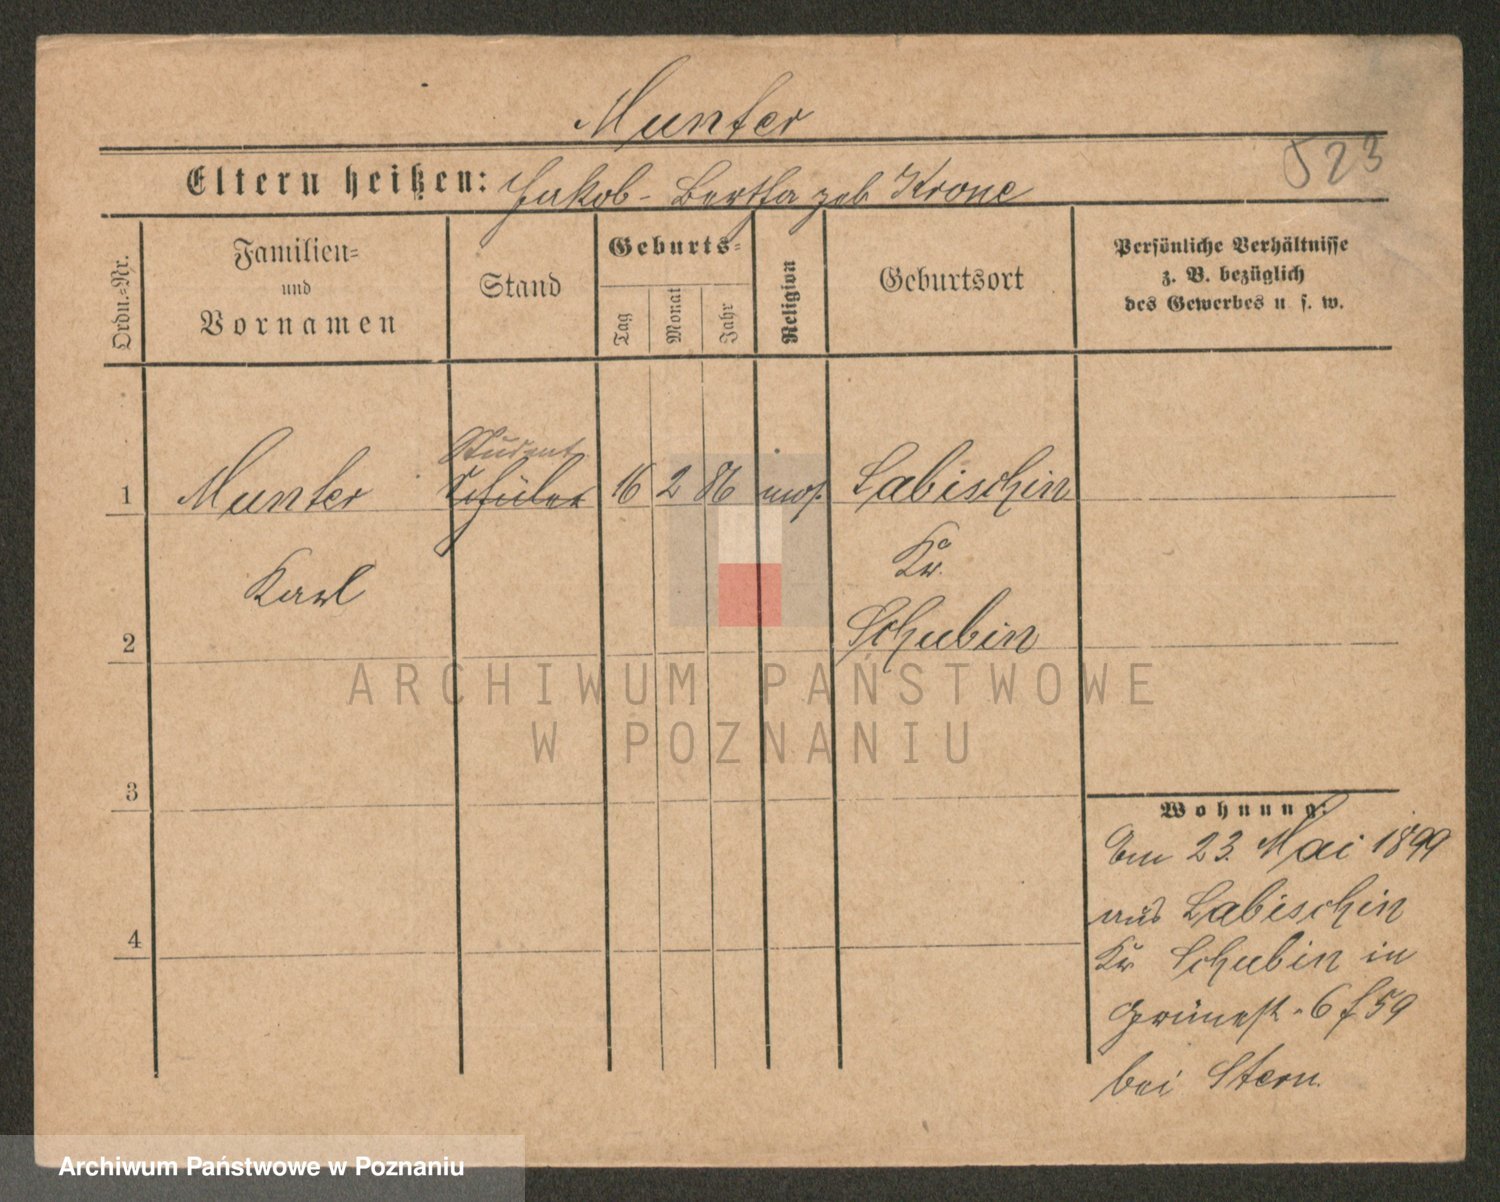 Munter
523
Eltern heißen: Jakob - Bertha geb Krone
Ordn.-Nr.
Familien-
und
Vornamen
Stand
Geburts-
Tag
Monat
Jahr
Religion
Geburtsort
Persönliche Verhältnisse
z. B. bezüglich
des Gewerbes u. s. w.
Student
1 Munter Schüler 16 2 86 mos. Labischin
Karl Kr.
2 Schubin
ARCHIWUM PAŃSTWOWE
W POZNANIU
3
Wohnung:
23. Mai 1899
aus Labischin
4
Kr Schubin in
Grünestr. 6 f 59
bei Stern
Archiwum Państwowe w Poznaniu